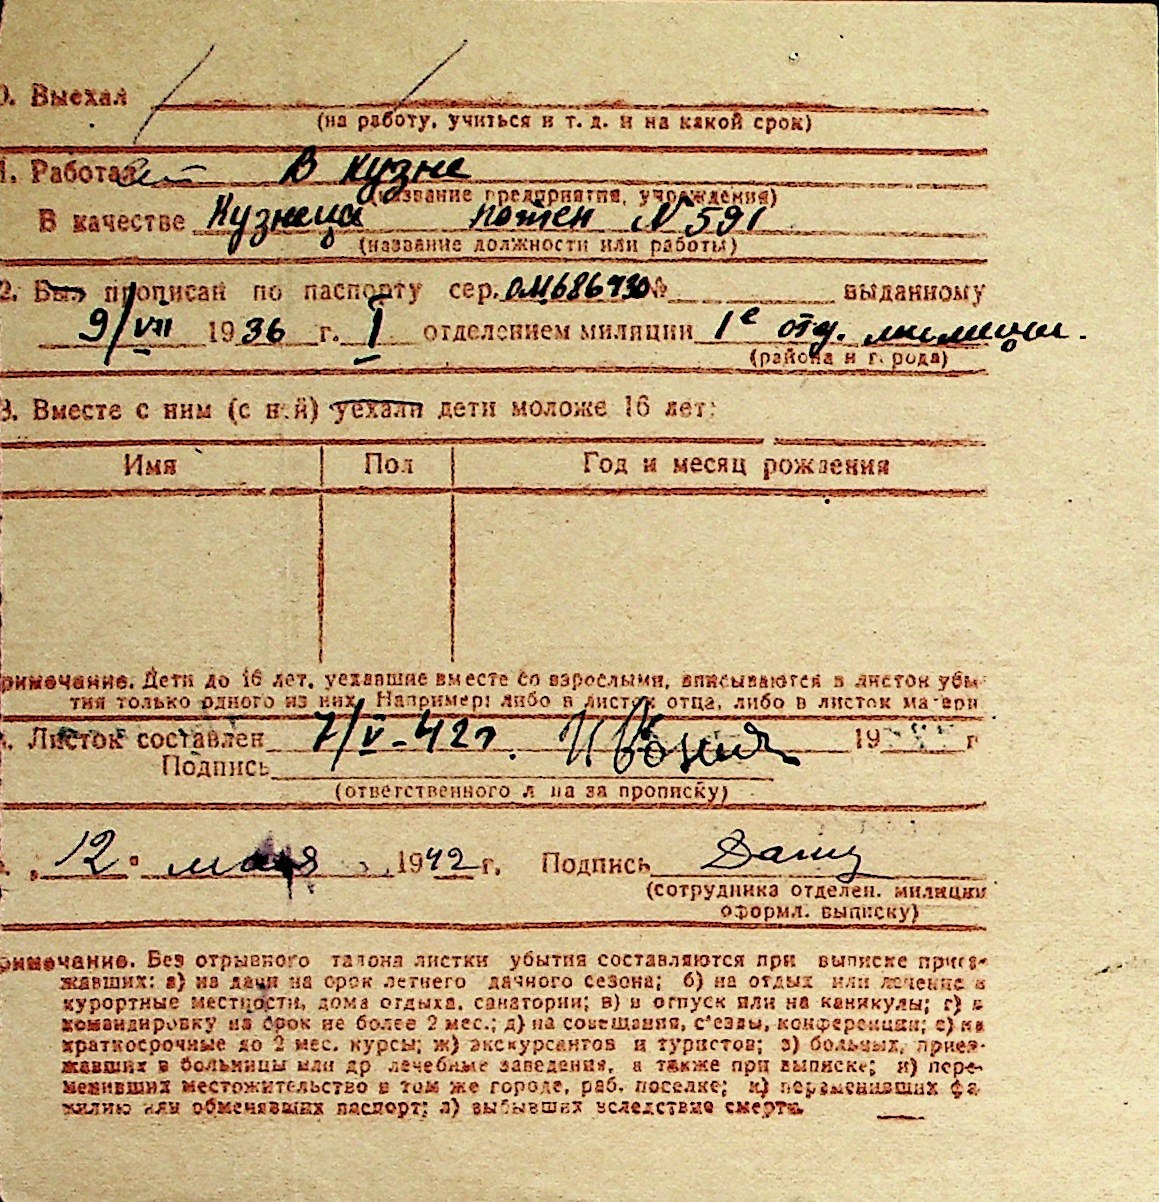 0. Выехал
(на работу, учиться и т. д. и на какой срок)
1. Работал В кузне
(название предприятия, учреждения)
В качестве Кузнеца патент № 591
(название должности или работы)
2. Был прописан по паспорту сер. ОМ686730 № выданному
9/VII 1936 г. I отделением милиции 1е отд. милиции.
(района и города)
3. Вместе с ним (с ней) уехали дети моложе 16 лет:
Имя Пол Год и месяц рождения
римечание. Дети до 16 лет, уехавшие вместе со взрослыми, вписываются в листок убы-
тия только одного из них. Например: либо в листок отца, либо в листок матери
. Листок составлен 7/V-42г. 19 г
Подпись
(ответственного лица за прописку)
. „12" мая 1942 г. Подпись
(сотрудника отделен. милиции
оформл. выписку)
римечание. Без отрывного талона листки убытия составляются при выписке приез-
жавших: а) на дачи на срок летнего дачного сезона; б) на отдых или лечение в
курортные местности, дома отдыха, санатории; в) в отпуск или на каникулы; г) в
командировку на срок не более 2 мес.; д) на совещания, с'езды, конференции; е) на
краткосрочные до 2 мес. курсы; ж) экскурсантов и туристов; з) больных, приез-
жавших в больницы или др лечебные заведения, а также при выписке; и) пере-
менивших местожительство в том же городе, раб. поселке; к) переменивших фа-
милию или обменявших паспорт; л) выбывших вследствие смерти.